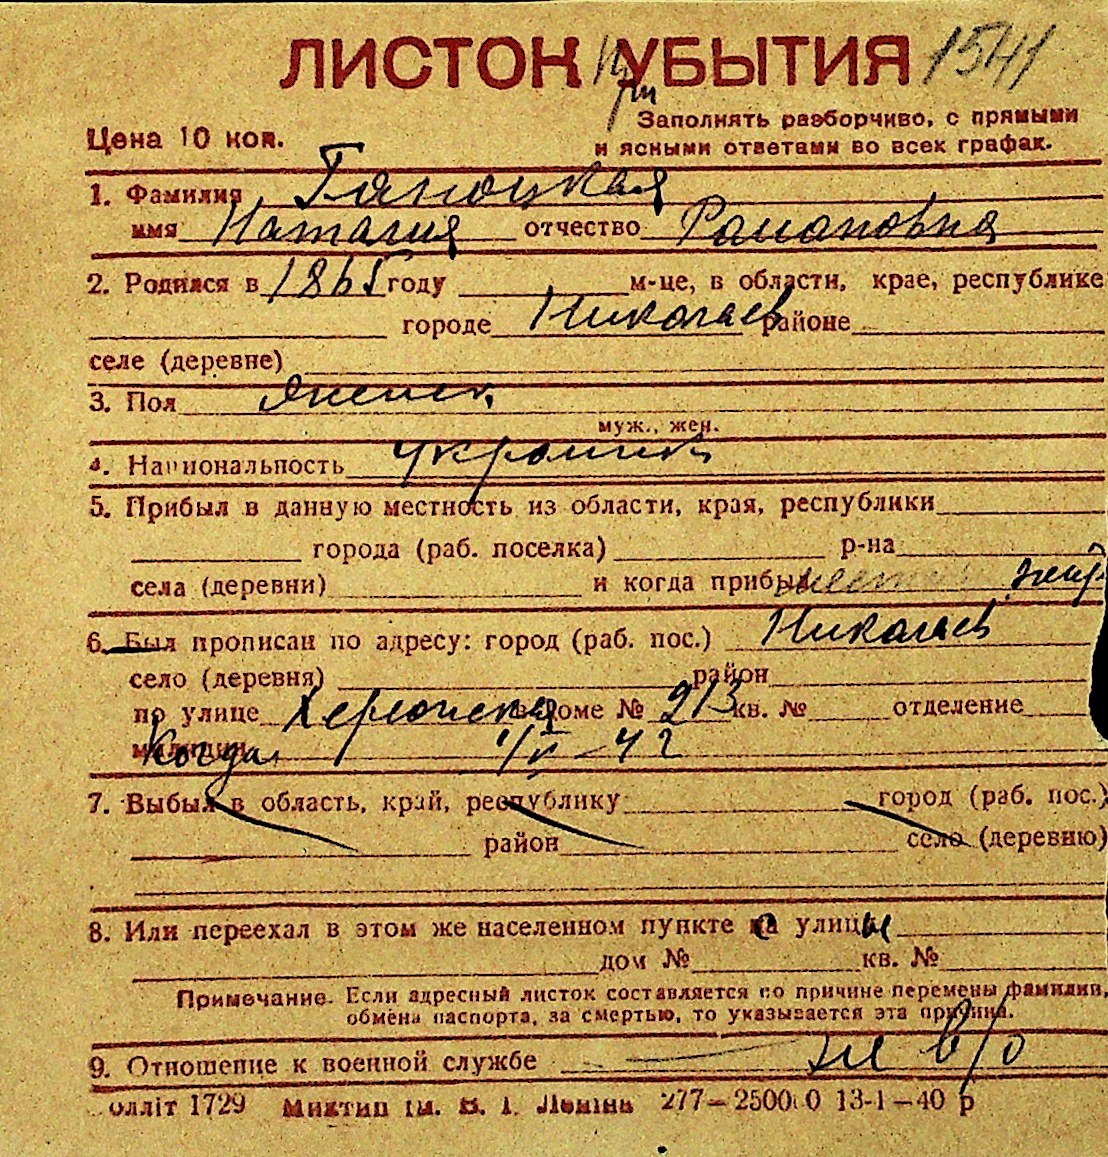 ЛИСТОК УБЫТИЯ 1541
Цена 10 коп.
Заполнять разборчиво, с прямыми
и ясными ответами во всех графах.
1. Фамилия Ганоцкая
имя Наталия отчество Романовна
2. Родился в 1865 году м-це, в области, крае, республике
городе Николаев районе
селе (деревне)
3. Пол женск.
муж., жен.
4. Национальность украинка
5. Прибыл в данную местность из области, края, республики
города (раб. поселка) р-на
села (деревни) и когда прибыл
6. Был прописан по адресу: город (раб. пос.) Николаев
село (деревня) район
по улице Херсонская в доме № 213 кв. № отделение
милиции Когда 1/V-42
7. Выбыл в область, край, республику город (раб. пос.)
район село (деревню)
8. Или переехал в этом же населенном пункте с улицы
дом № кв. №
Примечание. Если адресный листок составляется по причине перемены фамилии,
обмена паспорта, за смертью, то указывается эта причина.
9. Отношение к военной службе не в/о
олліт 1729 Миктип ім. В. І. Леніна 277—25000 13-1—40 р